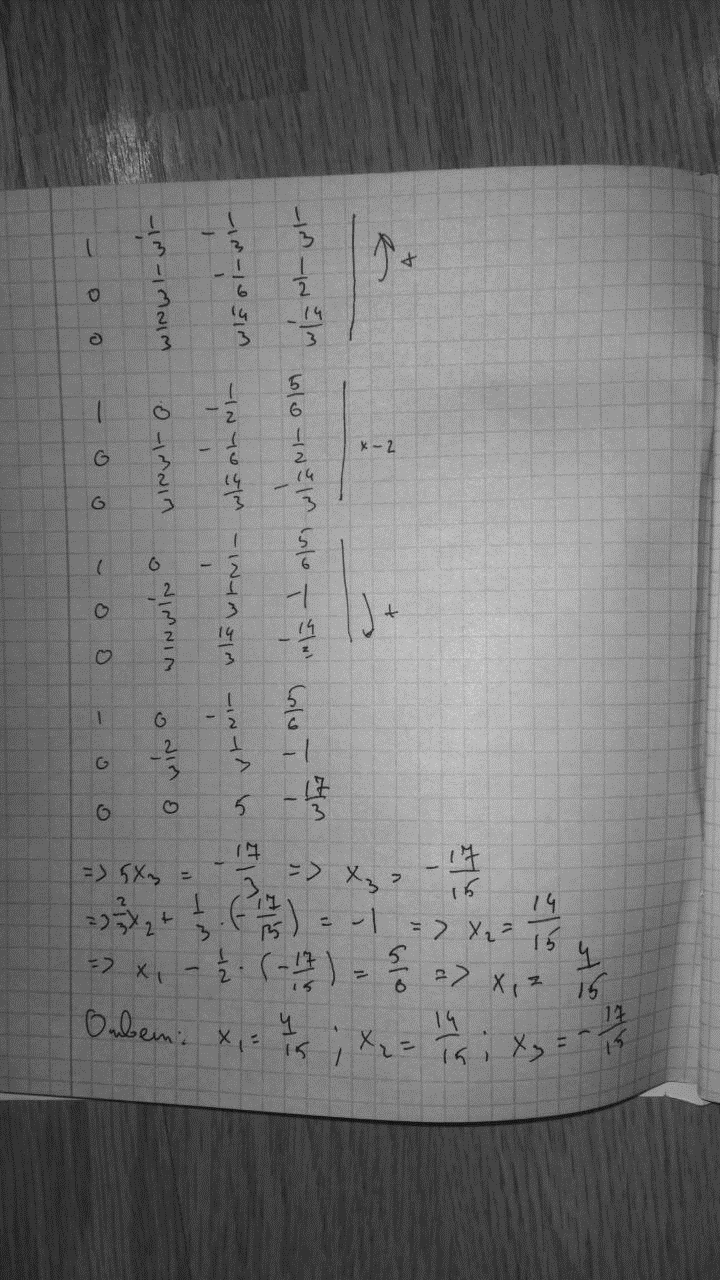 1 -1/3 -1/3 1/3
0 1/3 -1/6 1/2 +
0 2/3 14/3 -14/3
1 0 -1/2 5/6
0 1/3 -1/6 1/2 x-2
0 2/3 14/3 -14/3
1 0 -1/2 5/6
0 -2/3 1/3 -1
0 2/3 14/3 -14/3 +
1 0 -1/2 5/6
0 -2/3 1/3 -1
0 0 5 -17/3
=> 5x3 = -17/3 => x3 = -17/15
=> 2/3x2 + 1/3 · (-17/15) = -1 => x2 = 14/15
=> x1 - 1/2 · (-17/15) = 5/6 => x1 = 4/15
Ответ: x1 = 4/15 ; x2 = 14/15 ; x3 = -17/15